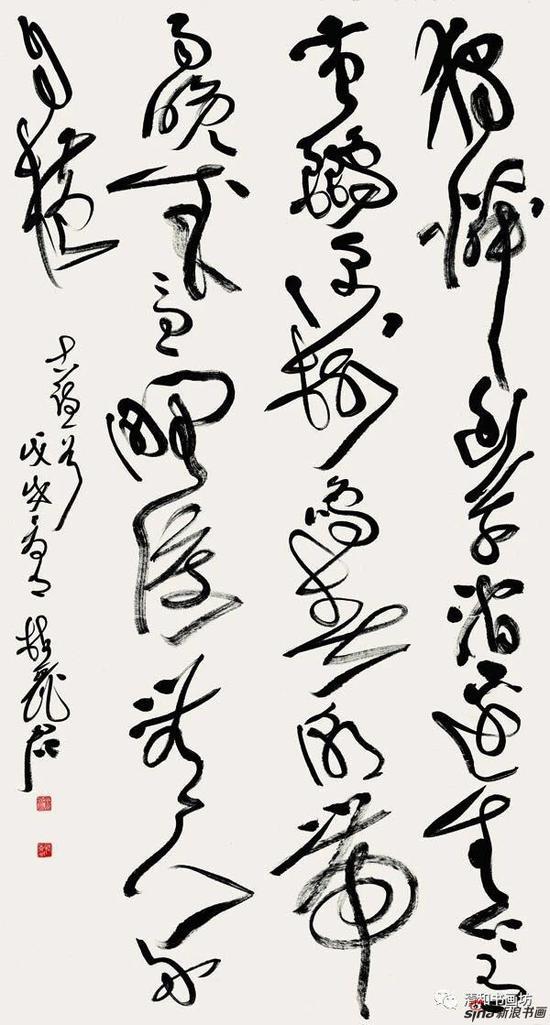 独怜幽草涧边生上有
黄鹂深树鸣春潮带
雨晚来急野渡无人舟
自横
戊戌
和书画坊
sina新浪书画